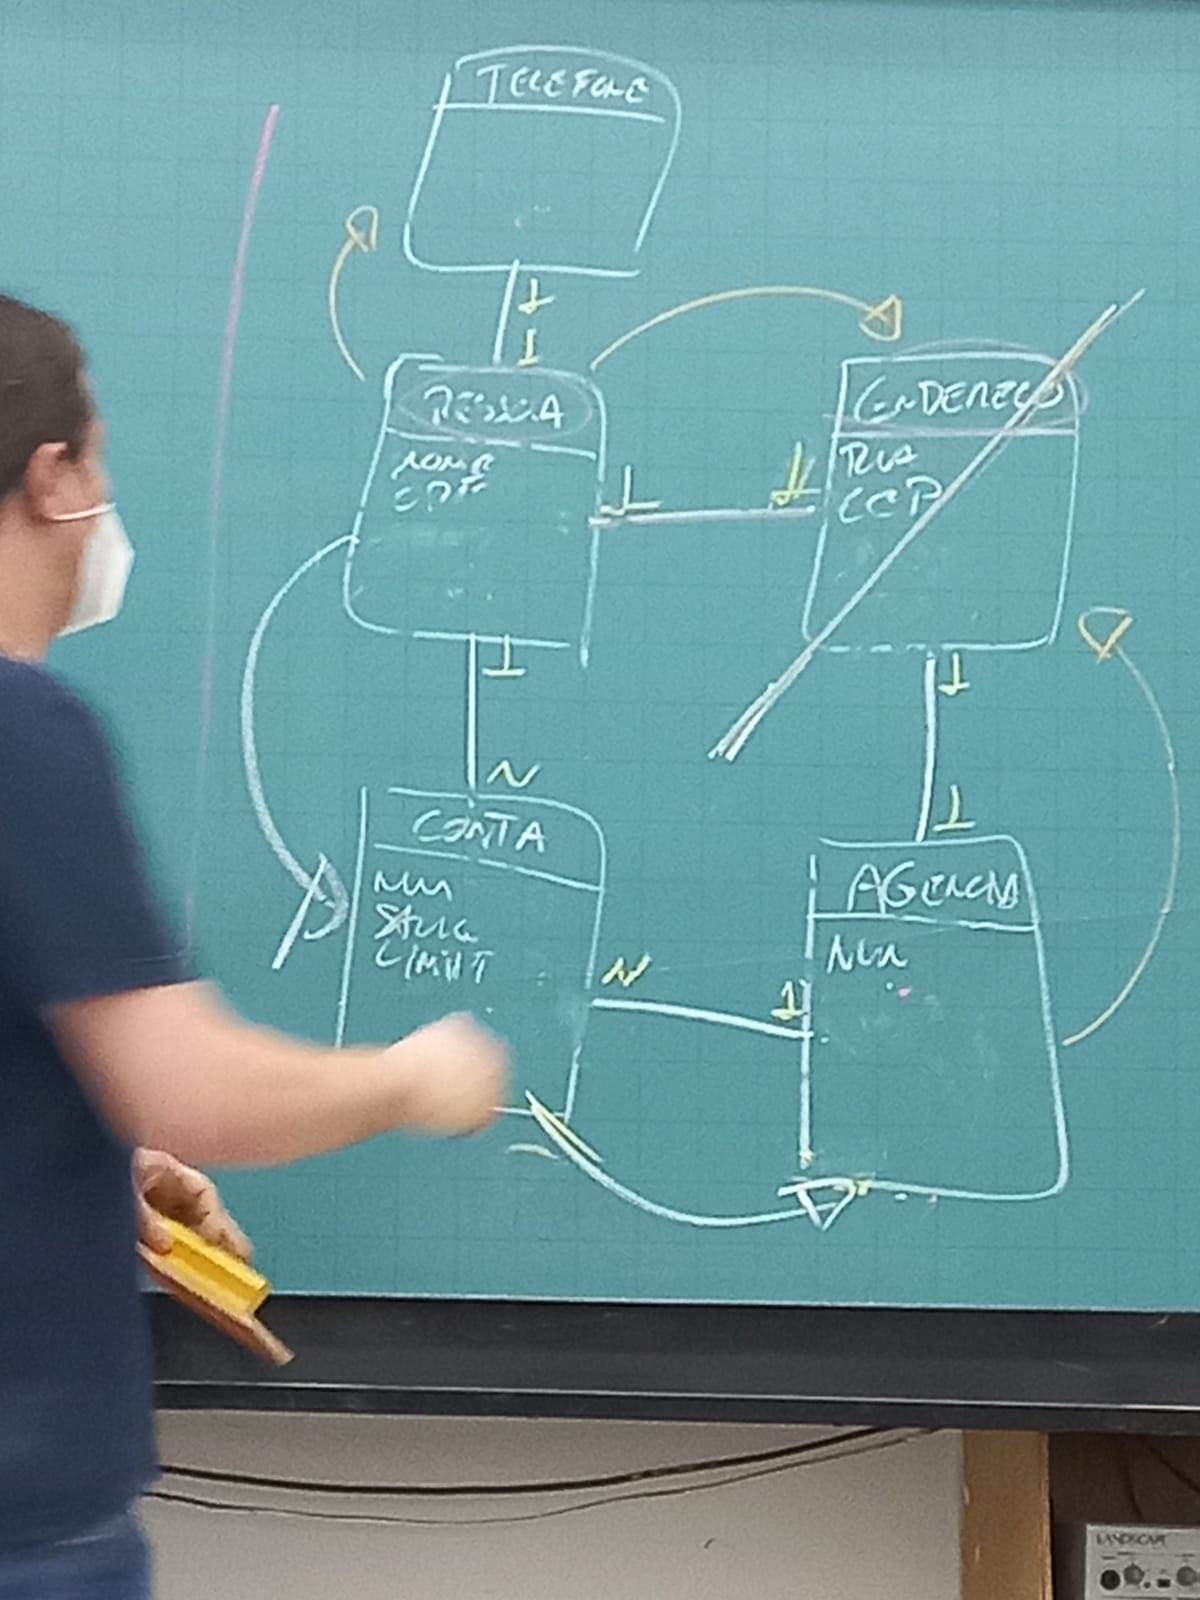 TELEFONE
1
1
PESSOA
NOME
CPF
ENDEREÇO
RUA
CEP
1
1
1
1
N
1
CONTA
NUM
SALDO
LIMIT
AGENCIA
NUM
N
1
LANDSCAPE